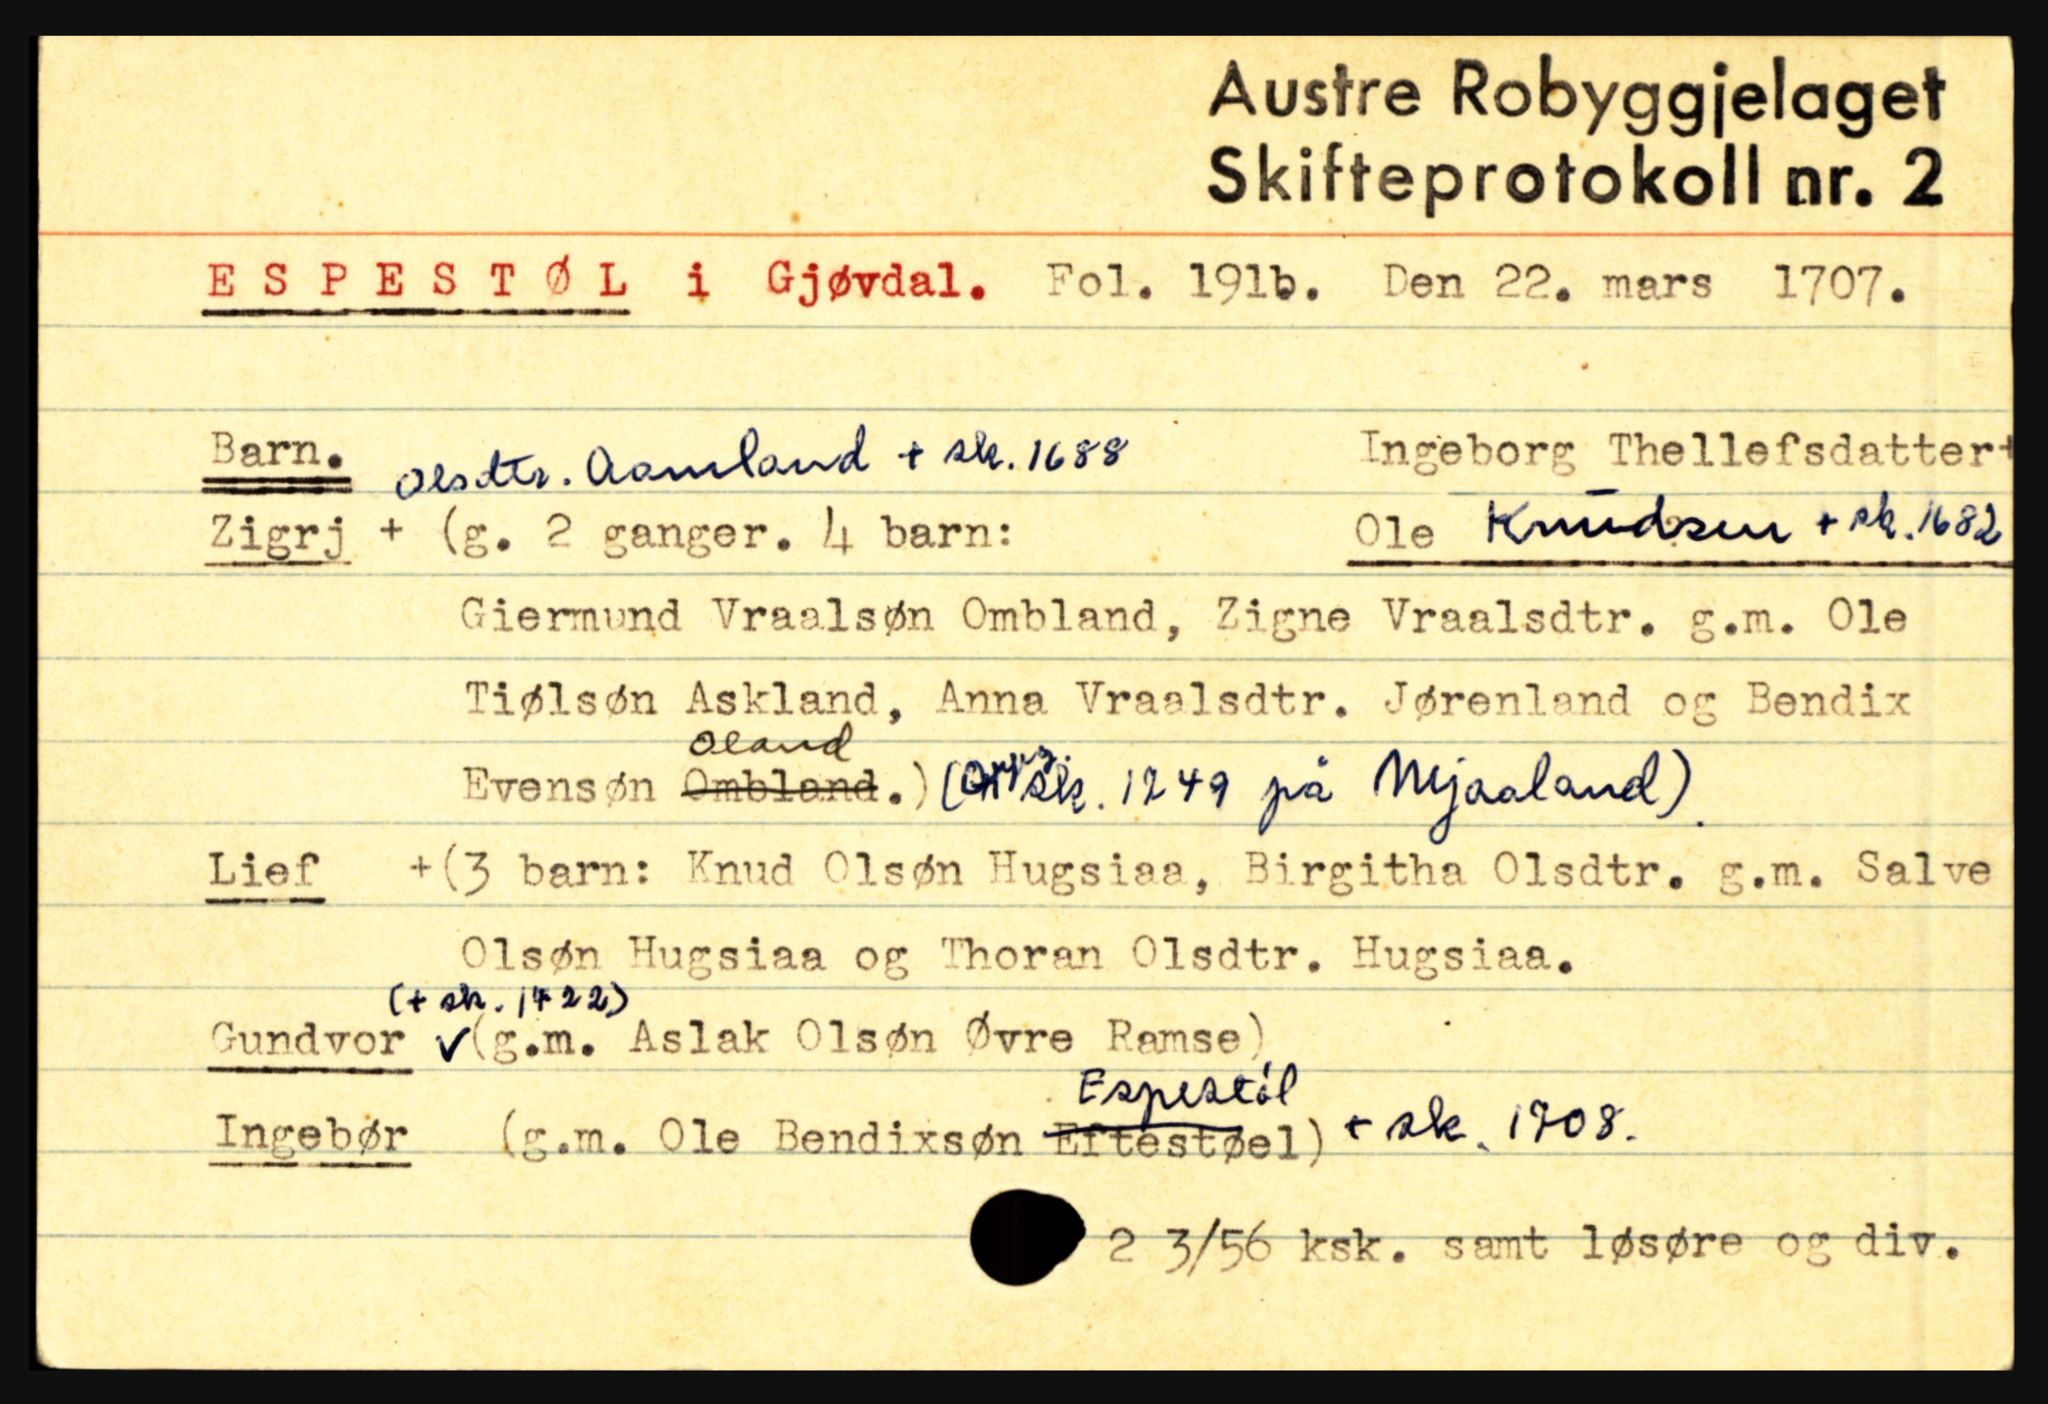 Austre Robyggjelaget
Skifteprotokoll nr. 2
ESPESTØL i Gjøvdal. Fol. 191b. Den 22. mars 1707.
Barn. Ingeborg Thellefsdatter+
Olsdtr. Aamland + sk. 1688
Zigrj + (g. 2 ganger. 4 barn: Ole Knudsen + sk. 1682
Giermund Vraalsøn Ombland, Zigne Vraalsdtr. g.m. Ole
Tiølsøn Askland, Anna Vraalsdtr. Jørenland og Bendix
Oland
Evensøn Ombland.) sk. 1749 på Mjaaland)
Lief +(3 barn: Knud Olsøn Hugsiaa, Birgitha Olsdtr. g.m. Salve
Olsøn Hugsiaa og Thoran Olsdtr. Hugsiaa.
(+ sk. 1722)
Gundvor ✓(g.m. Aslak Olsøn Øvre Ramse)
Espestøl
Ingebør (g.m. Ole Bendixsøn Eftestøel) + sk. 1708.
2 3/56 ksk. samt løsøre og div.